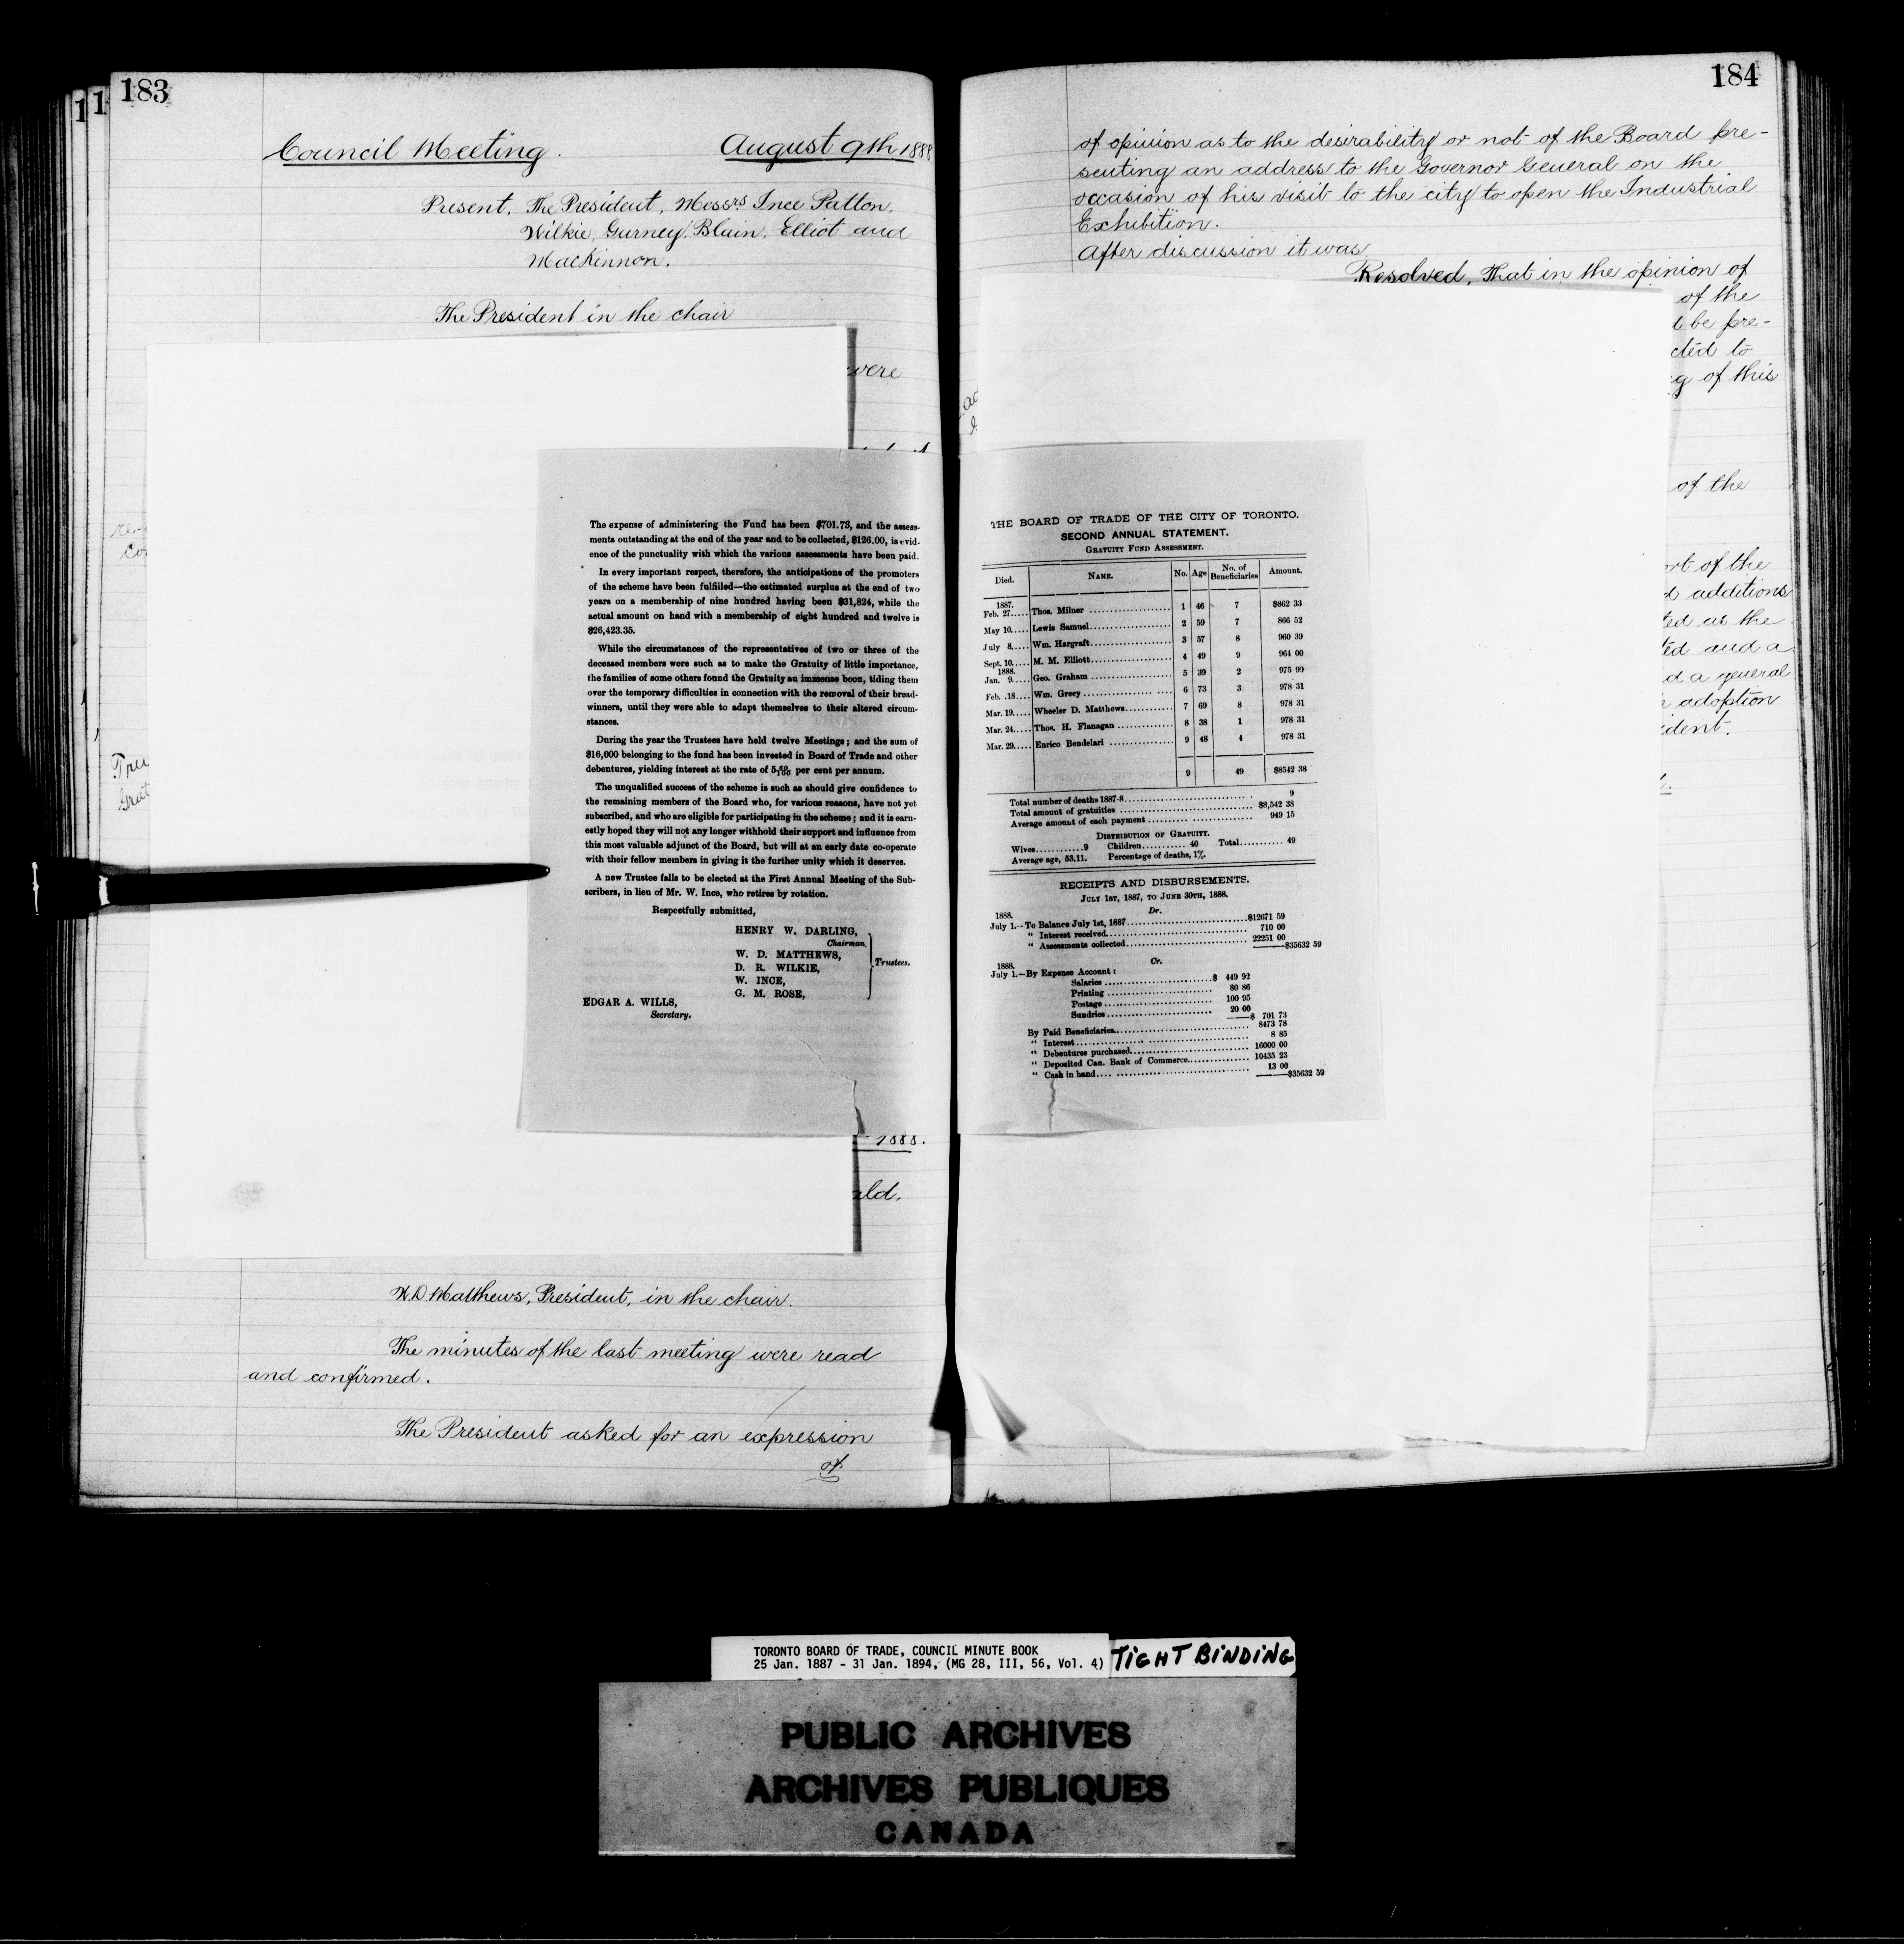 183
Council Meeting. August 9th 1888
Present, The President, Messrs Ince Patton,
Wilkie, Gurney, Blain, Elliot and
MacKinnon.
The President in the chair
were
The expense of administering the Fund has been $701.73, and the assess-
ments outstanding at the end of the year and to be collected, $126.00, is evid-
ence of the punctuality with which the various assessments have been paid.
In every important respect, therefore, the anticipations of the promoters
of the scheme have been fulfilled—the estimated surplus at the end of two
years on a membership of nine hundred having been $31,824, while the
actual amount on hand with a membership of eight hundred and twelve is
$26,423.35.
While the circumstances of the representatives of two or three of the
deceased members were such as to make the Gratuity of little importance,
the families of some others found the Gratuity an immense boon, tiding them
over the temporary difficulties in connection with the removal of their bread-
winners, until they were able to adapt themselves to their altered circum-
stances.
During the year the Trustees have held twelve Meetings; and the sum of
$16,000 belonging to the fund has been invested in Board of Trade and other
debentures, yielding interest at the rate of per cent per annum.
The unqualified success of the scheme is such as should give confidence to
the remaining members of the Board who, for various reasons, have not yet
subscribed, and who are eligible for participating in the scheme; and it is earn-
estly hoped they will not any longer withhold their support and influence from
this most valuable adjunct of the Board, but will at an early date co-operate
with their fellow members in giving it the further unity which it deserves.
A new Trustee falls to be elected at the First Annual Meeting of the Sub-
scribers, in lieu of Mr. W. Ince, who retires by rotation.
Respectfully submitted,
HENRY W. DARLING,
Chairman,
W. D. MATTHEWS,
D. R. WILKIE,
W. INCE,
G. M. ROSE,
Trustees.
EDGAR A. WILLS,
Secretary.
1888.
ald.
W.D. Matthews, President, in the chair.
The minutes of the last meeting were read
and confirmed.
The President asked for an expression
of
184
of opinion as to the desirability or not of the Board pre-
senting an address to the Governor General on the
occasion of his visit to the city to open the Industrial
Exhibition.
After discussion it was
Resolved, That in the opinion of
of the
be pre-
cted to
of this
of the
of the
additions
as the
and a
a general
adoption
ident.
THE BOARD OF TRADE OF THE CITY OF TORONTO.
SECOND ANNUAL STATEMENT.
GRATUITY FUND ASSESSMENT.
Died. NAME. No. Age No. of Beneficiaries Amount.
1887.
Feb. 27..... Thos. Milner 1 46 7 $862 33
May 10..... Lewis Samuel 2 59 7 866 52
July 8..... Wm. Hargraft 3 57 8 960 39
Sept. 10..... M. M. Elliott 4 49 9 964 00
1888.
Jan. 9..... Geo. Graham 5 39 2 975 90
Feb. 18..... Wm. Greey 6 73 3 978 31
Mar. 19..... Wheeler D. Matthews 7 69 8 978 31
Mar. 24..... Thos. H. Flanagan 8 38 1 978 31
Mar. 29..... Enrico Bendelari 9 48 4 978 31
9 49 $8542 38
Total number of deaths 1887-8 9
Total amount of gratuities $8,542 38
Average amount of each payment 949 15
DISTRIBUTION OF GRATUITY.
Wives 9 Children 40 Total 49
Average age, 53.11. Percentage of deaths, 1%.
RECEIPTS AND DISBURSEMENTS.
JULY 1ST, 1887, TO JUNE 30TH, 1888.
Dr.
1888.
July 1.—To Balance July 1st, 1887 $12671 59
" Interest received 710 00
" Assessments collected 22251 00
$35632 59
Cr.
1888.
July 1.—By Expense Account:
Salaries $ 449 92
Printing 80 86
Postage 100 95
Sundries 20 00
$ 701 73
By Paid Beneficiaries 8473 78
" Interest 8 85
" Debentures purchased 16000 00
" Deposited Can. Bank of Commerce 10435 23
" Cash in hand 13 00
$35632 59
TORONTO BOARD OF TRADE, COUNCIL MINUTE BOOK
25 Jan. 1887 - 31 Jan. 1894, (MG 28, III, 56, Vol. 4)
TIGHT BINDING
PUBLIC ARCHIVES
ARCHIVES PUBLIQUES
CANADA